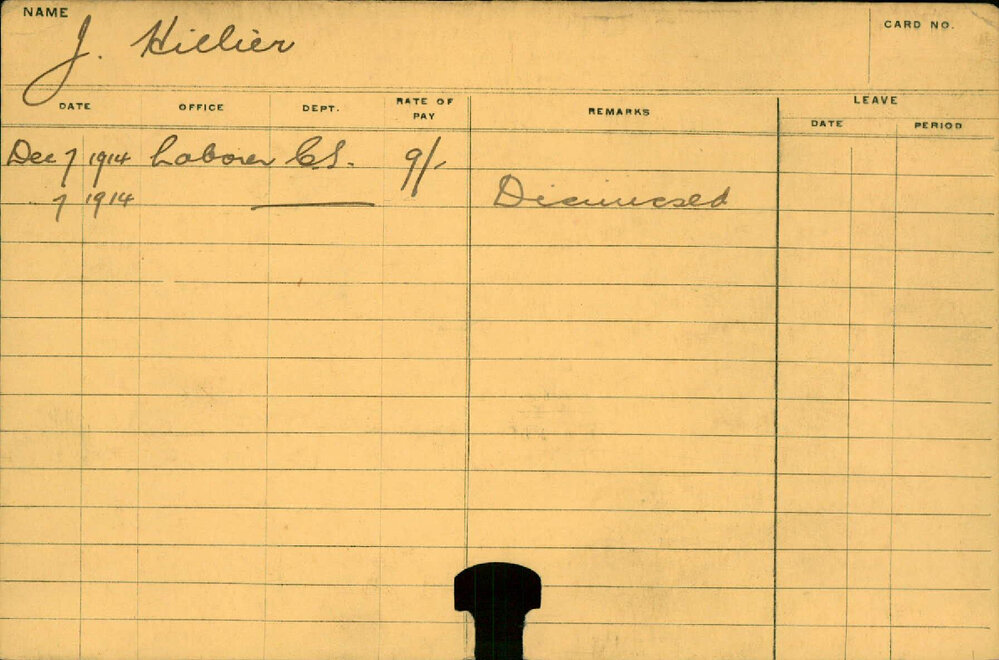 NAME
J. Hillier
CARD NO.
DATE OFFICE DEPT. RATE OF PAY REMARKS LEAVE
DATE PERIOD
Dec 7 1914 Laborer C.S. 9/-
7 1914 Dismissed